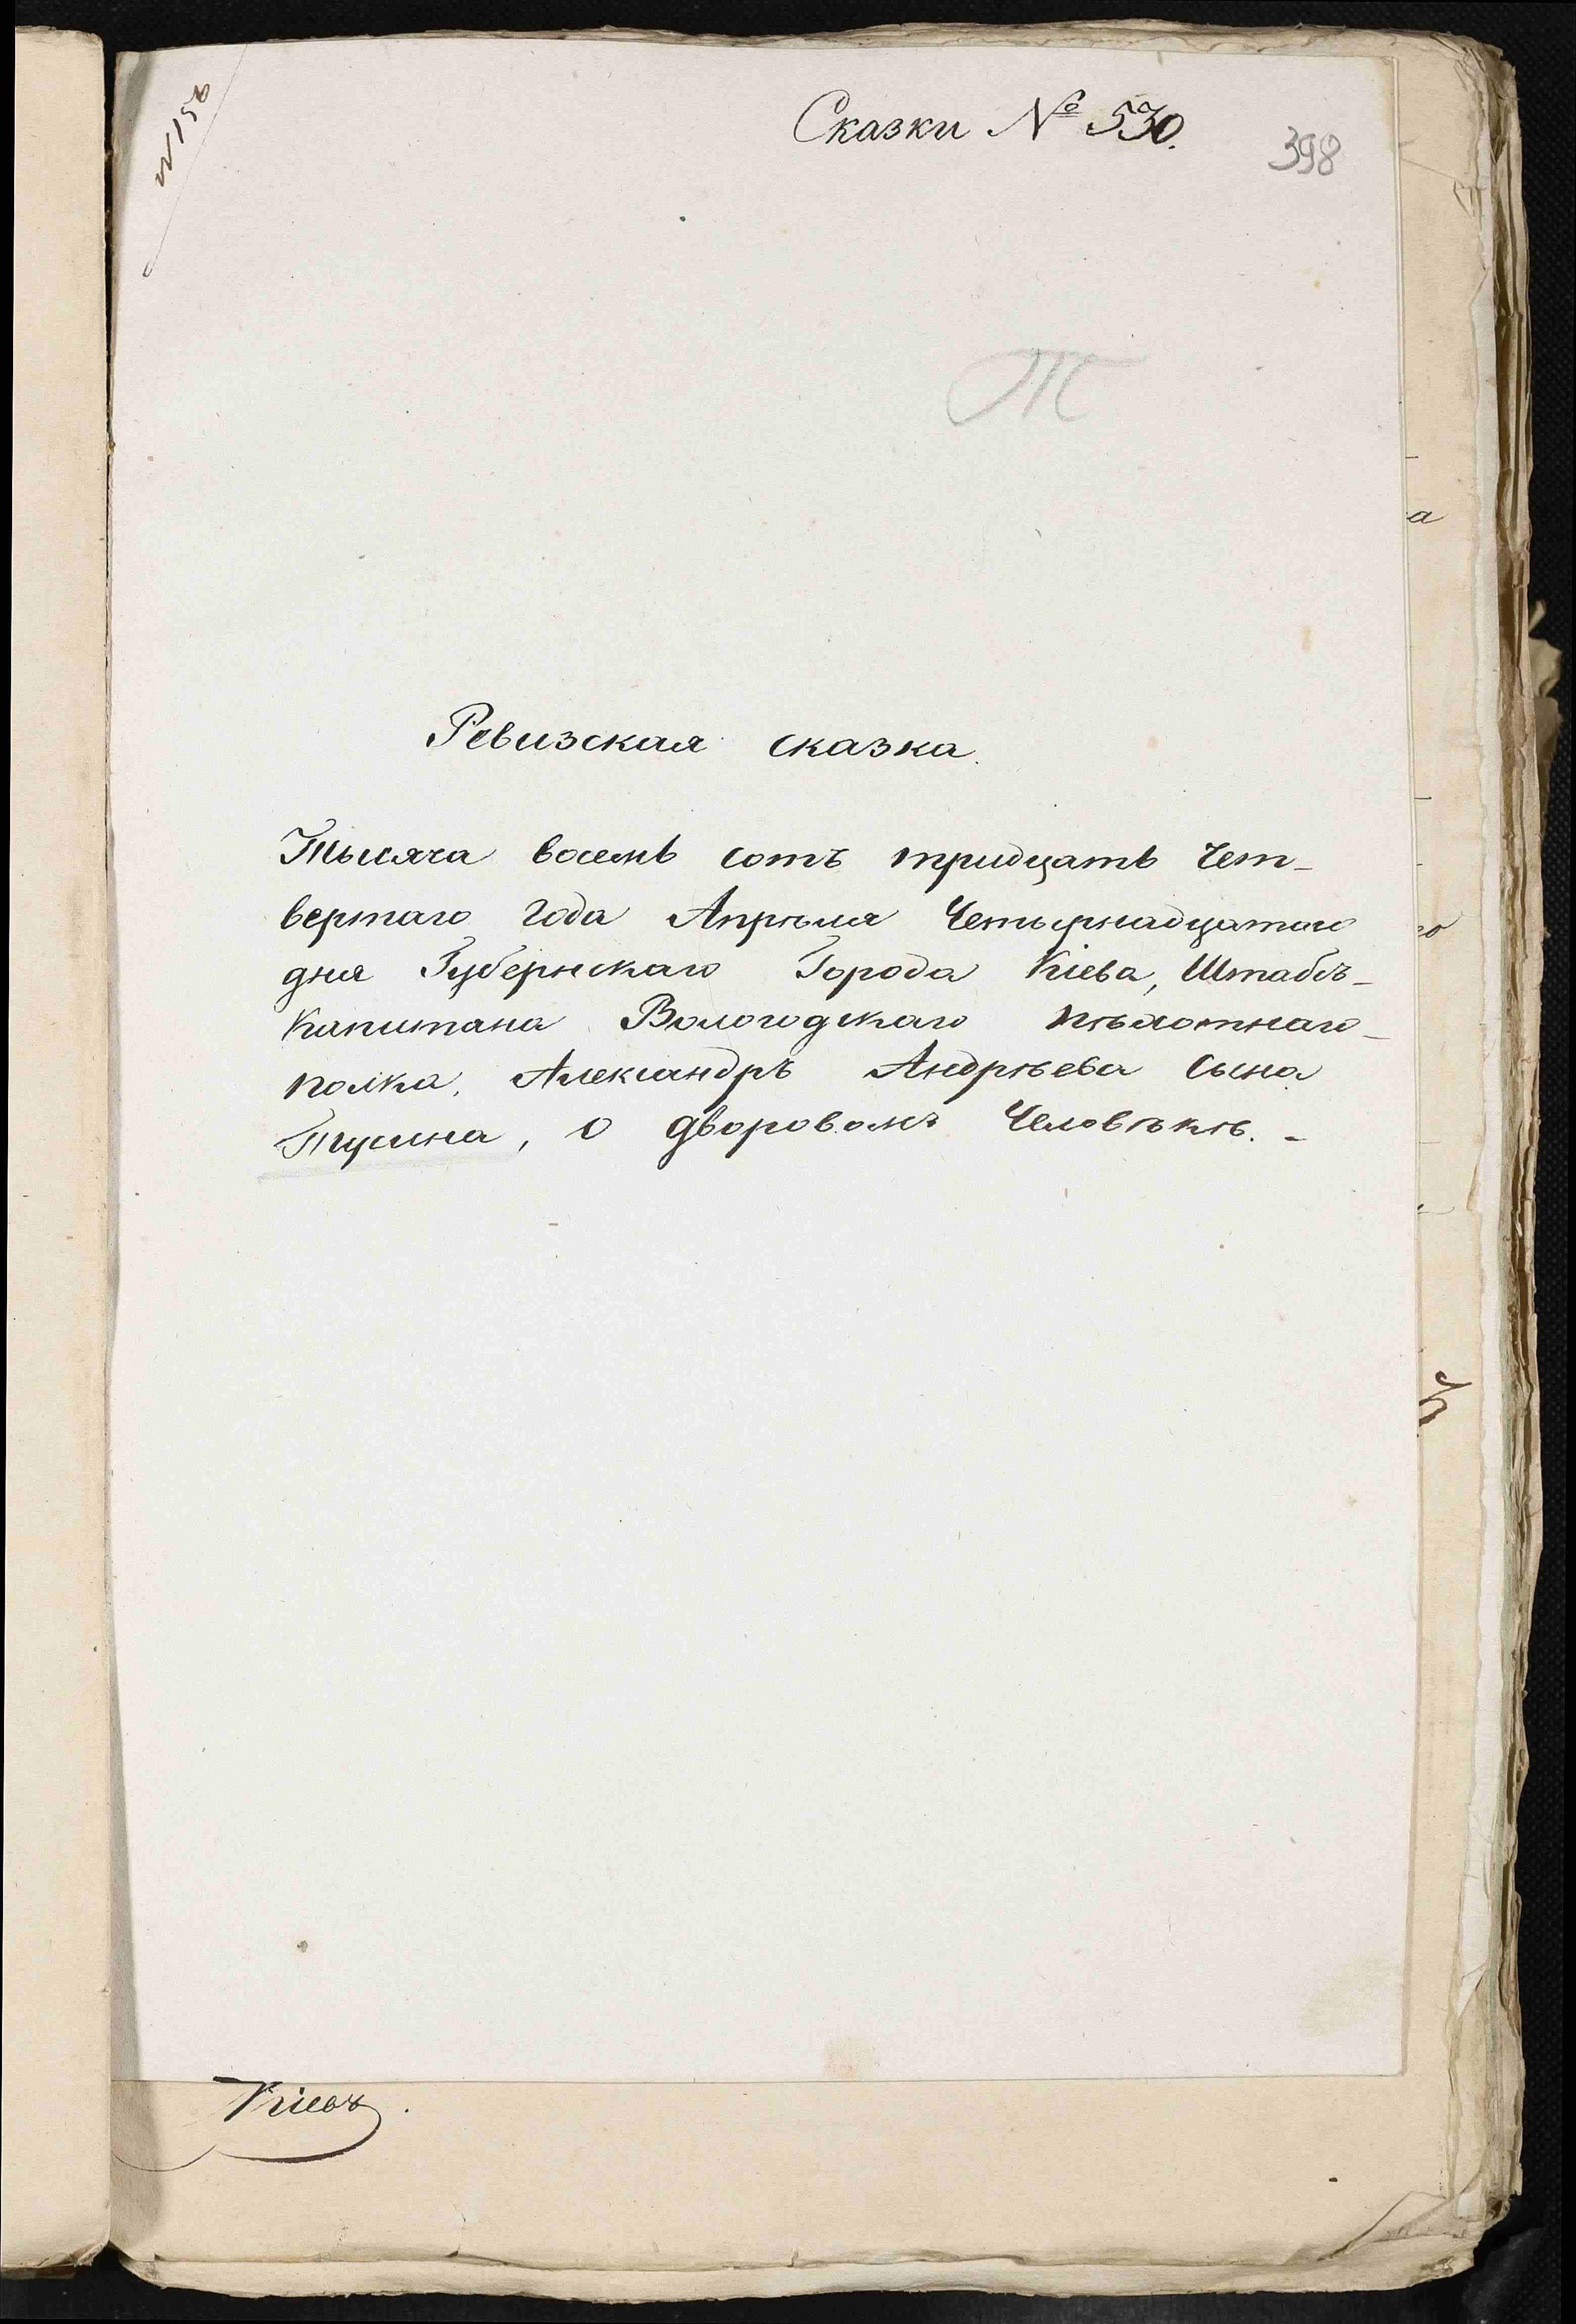 № 156
Сказки № 530.
398
Т
Ревизская сказка.
Тысяча восемь сотъ тридцать Чет-
вертаго Года Апрѣля Четырнадцатаго
дня Губернскаго Города Кіева, Штабсъ-
Капитана Вологодскаго пѣхотнаго-
полка, Александръ Андрѣева Сына
Тусина, о дворовомъ Человѣкѣ. -
Кіевъ.